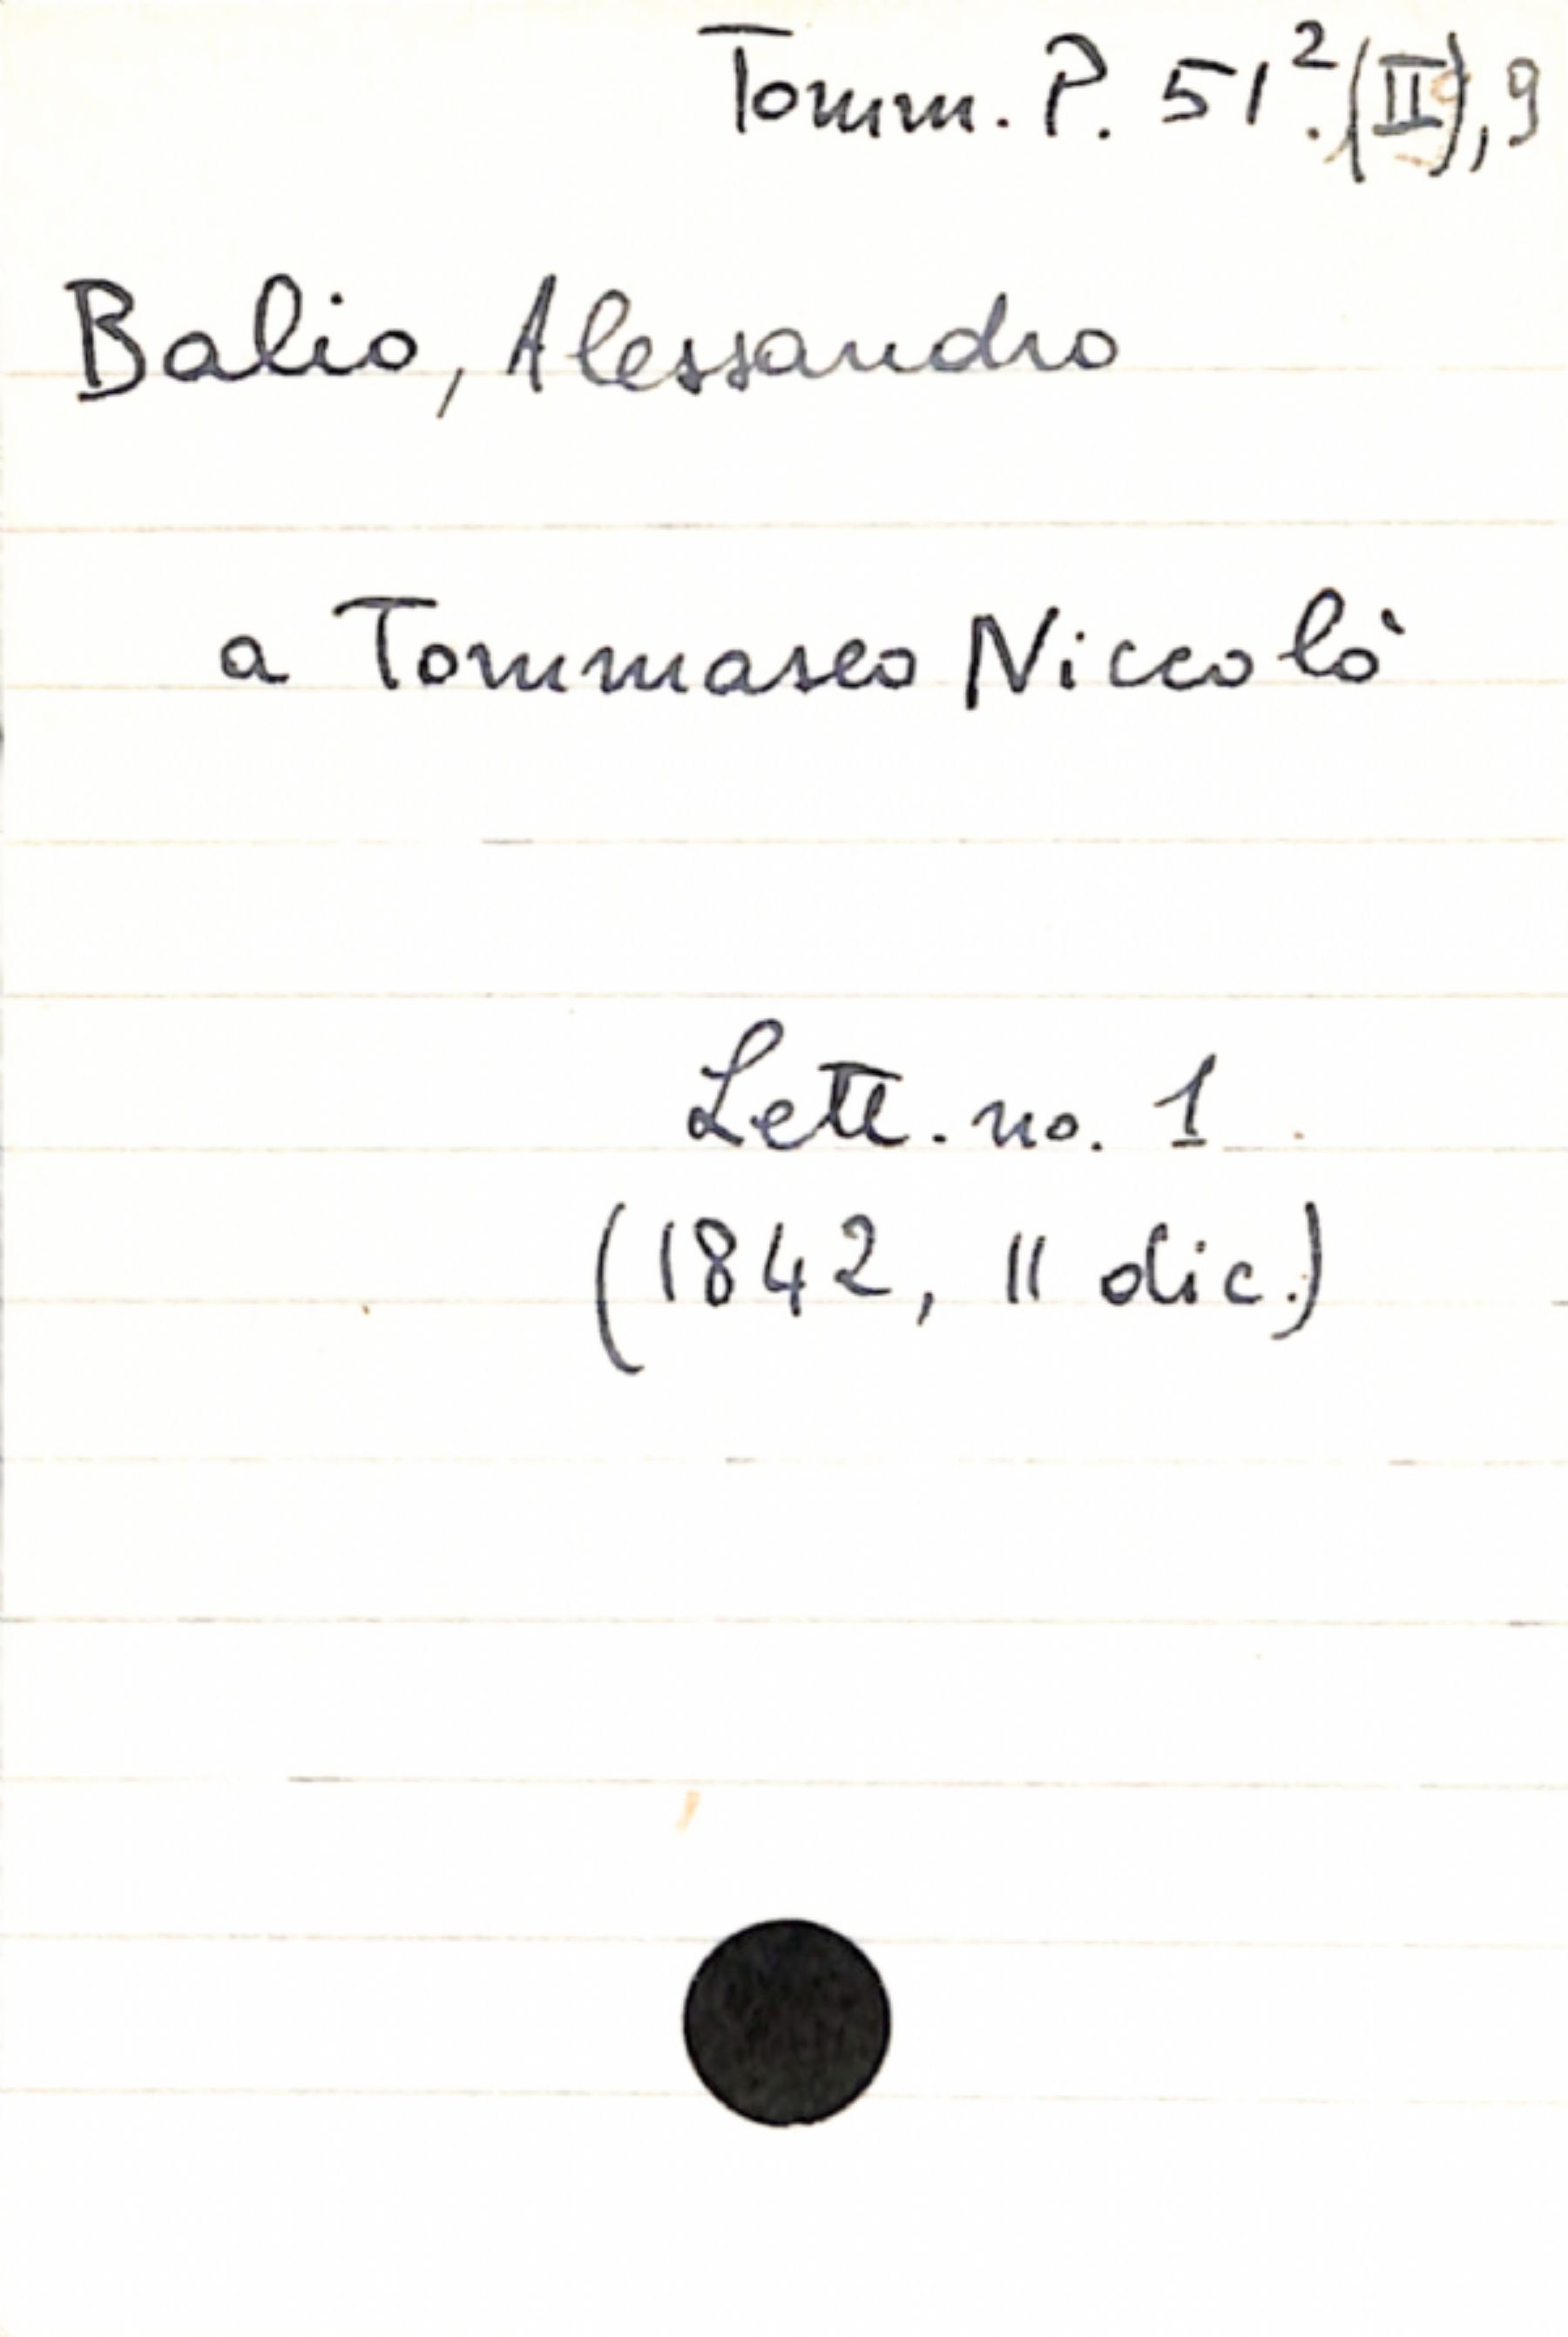 Tomm. P. 51².(II), 9
Balio, Alessandro
a Tommaseo Niccolò
Lett. no. 1
(1842, 11 dic.)